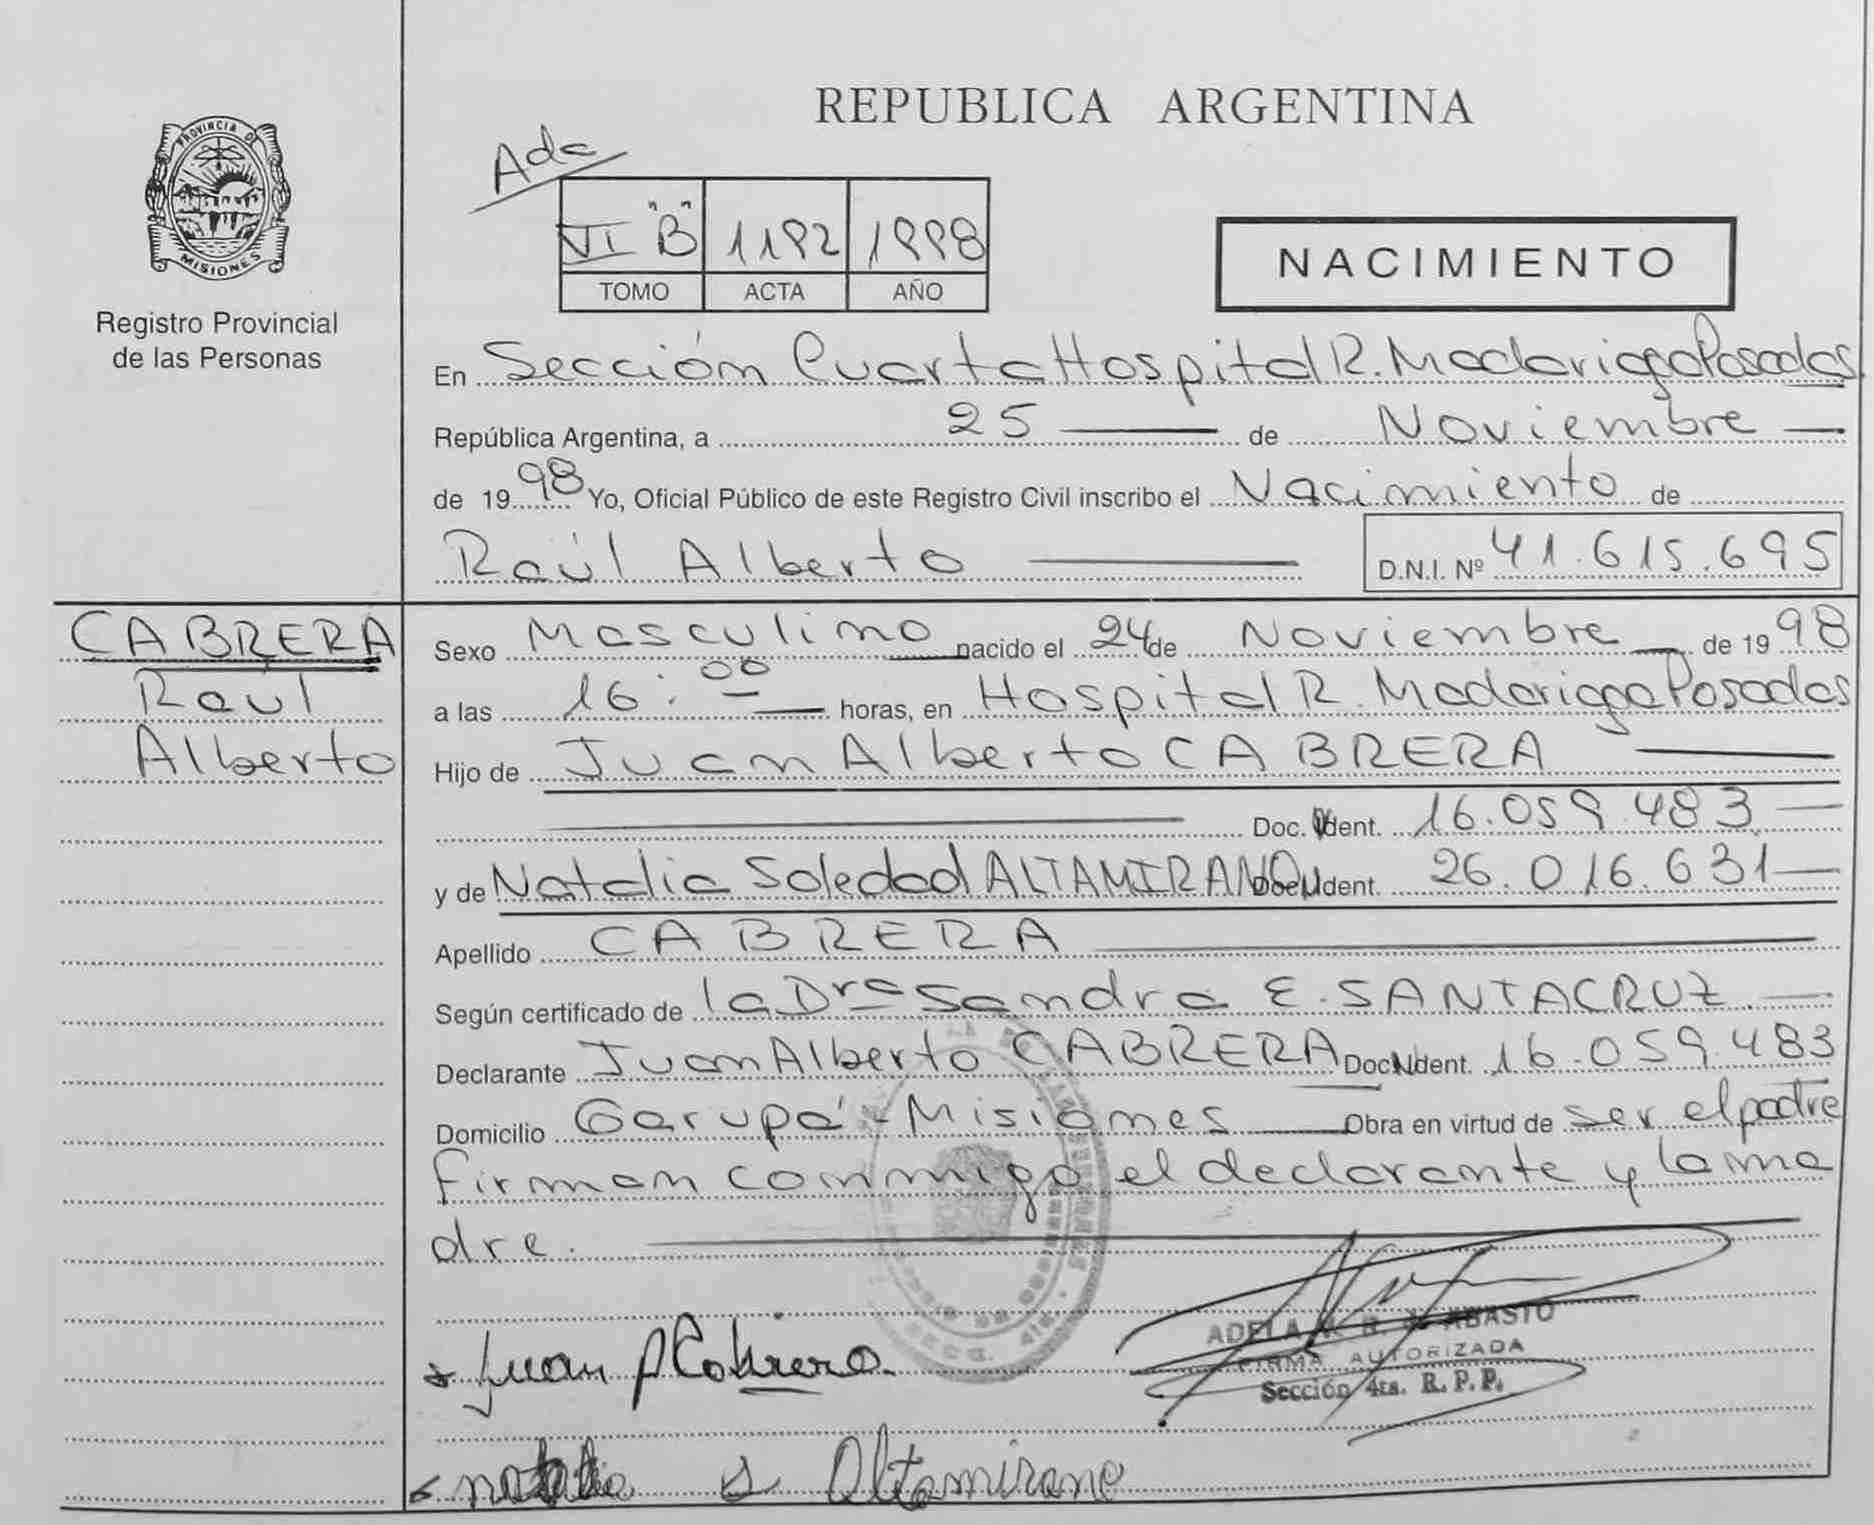 REPUBLICA ARGENTINA
PROVINCIA DE
MISIONES
Registro Provincial
de las Personas
Ada
VI "B" 1192 1998
TOMO ACTA AÑO
NACIMIENTO
En Sección Cuarta Hospital R. Madariaga Posadas
República Argentina, a 25 de Noviembre
de 1998 Yo, Oficial Público de este Registro Civil inscribo el Nacimiento de
Raúl Alberto D.N.I. Nº 41.615.695
CABRERA
Raúl
Alberto
Sexo Masculino nacido el 24 de Noviembre de 1998
a las 16:00 horas, en Hospital R. Madariaga Posadas
Hijo de Juan Alberto CABRERA
Doc. Ident. 16.059.483
y de Natalia Soledad ALTAMIRANO Doc. Ident. 26.016.631
Apellido CABRERA
Según certificado de la Dra Sandra E. SANTACRUZ
Declarante Juan Alberto CABRERA Doc. Ident. 16.059.483
Domicilio Garupá - Misiones Obra en virtud de ser el padre
firman conmigo el declarante y la ma
dre.
Juan A Cabrera
ADELA B. de ABASTO
FIRMA AUTORIZADA
Sección 4ta. R. P. P.
natalia S Altamirano